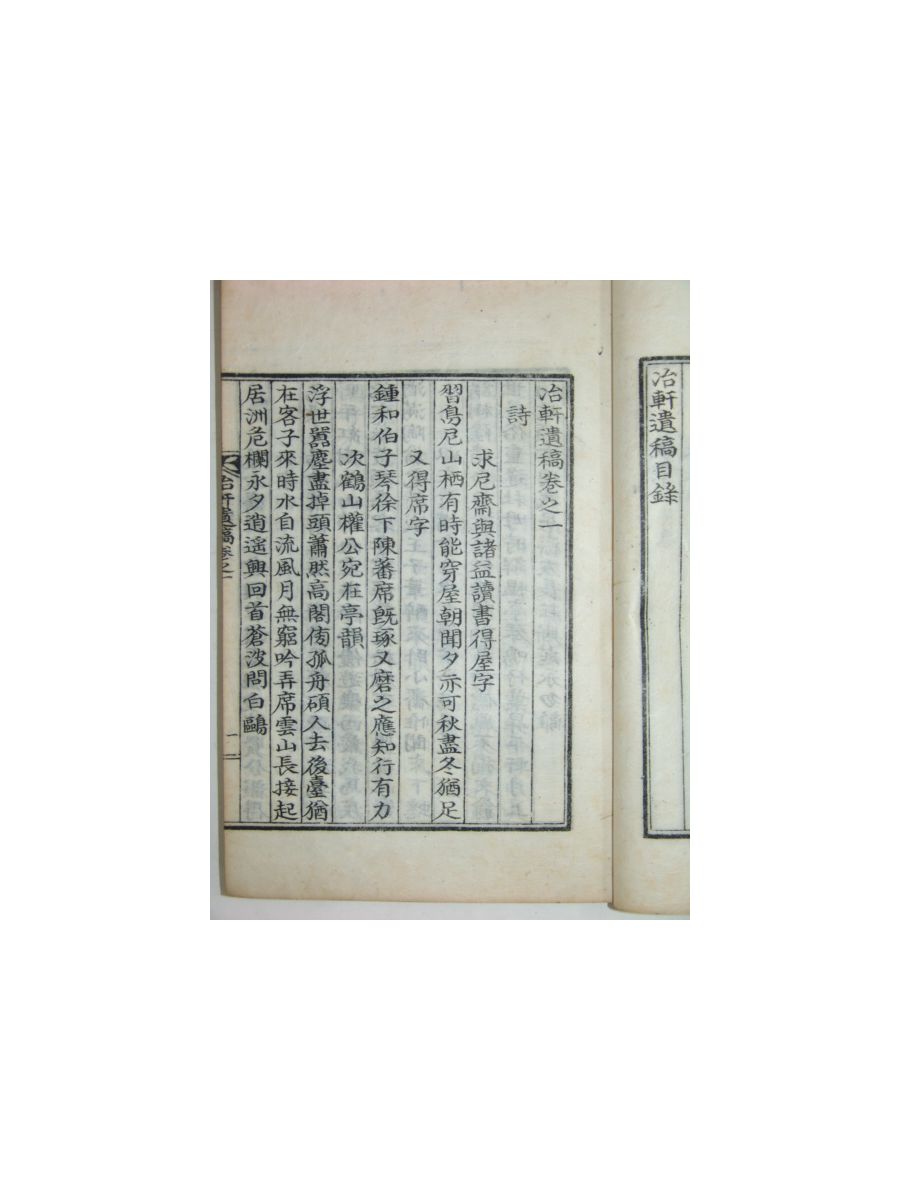 冶軒遺稿目錄
冶軒遺稿卷之一
詩
求尼齋與諸益讀書得屋字
習鳥尼山栖有時能穿屋朝聞夕亦可秋盡冬猶足
又得席字
鍾和伯子琴徐下陳蕃席旣琢又磨之應知行有力
次鶴山權公宛在亭韻
浮世囂塵盡掉頭蕭然高閣傍孤舟碩人去後臺猶
在客子來時水自流風月無窮吟弄席雲山長接起
居洲危欄永夕逍遙興回首蒼波問白鷗
冶軒遺稿卷之一
一